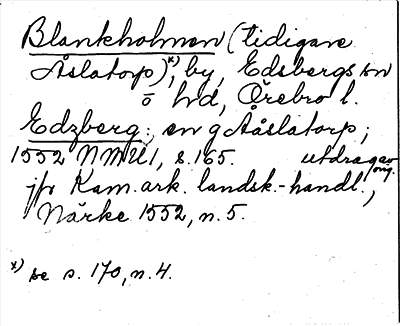 Blankholmen (tidigare
Åslatorp)ˣ⁾, by, Edsbergs sn
o hd, Örebro l.
Edzberg: en g Aåslatorp;
1552 NMU1, s. 165. utdrag av
orig.
jfr Kam. ark. landsk.-handl.,
Närke 1552, n. 5.
x) se s. 170, n. 4.